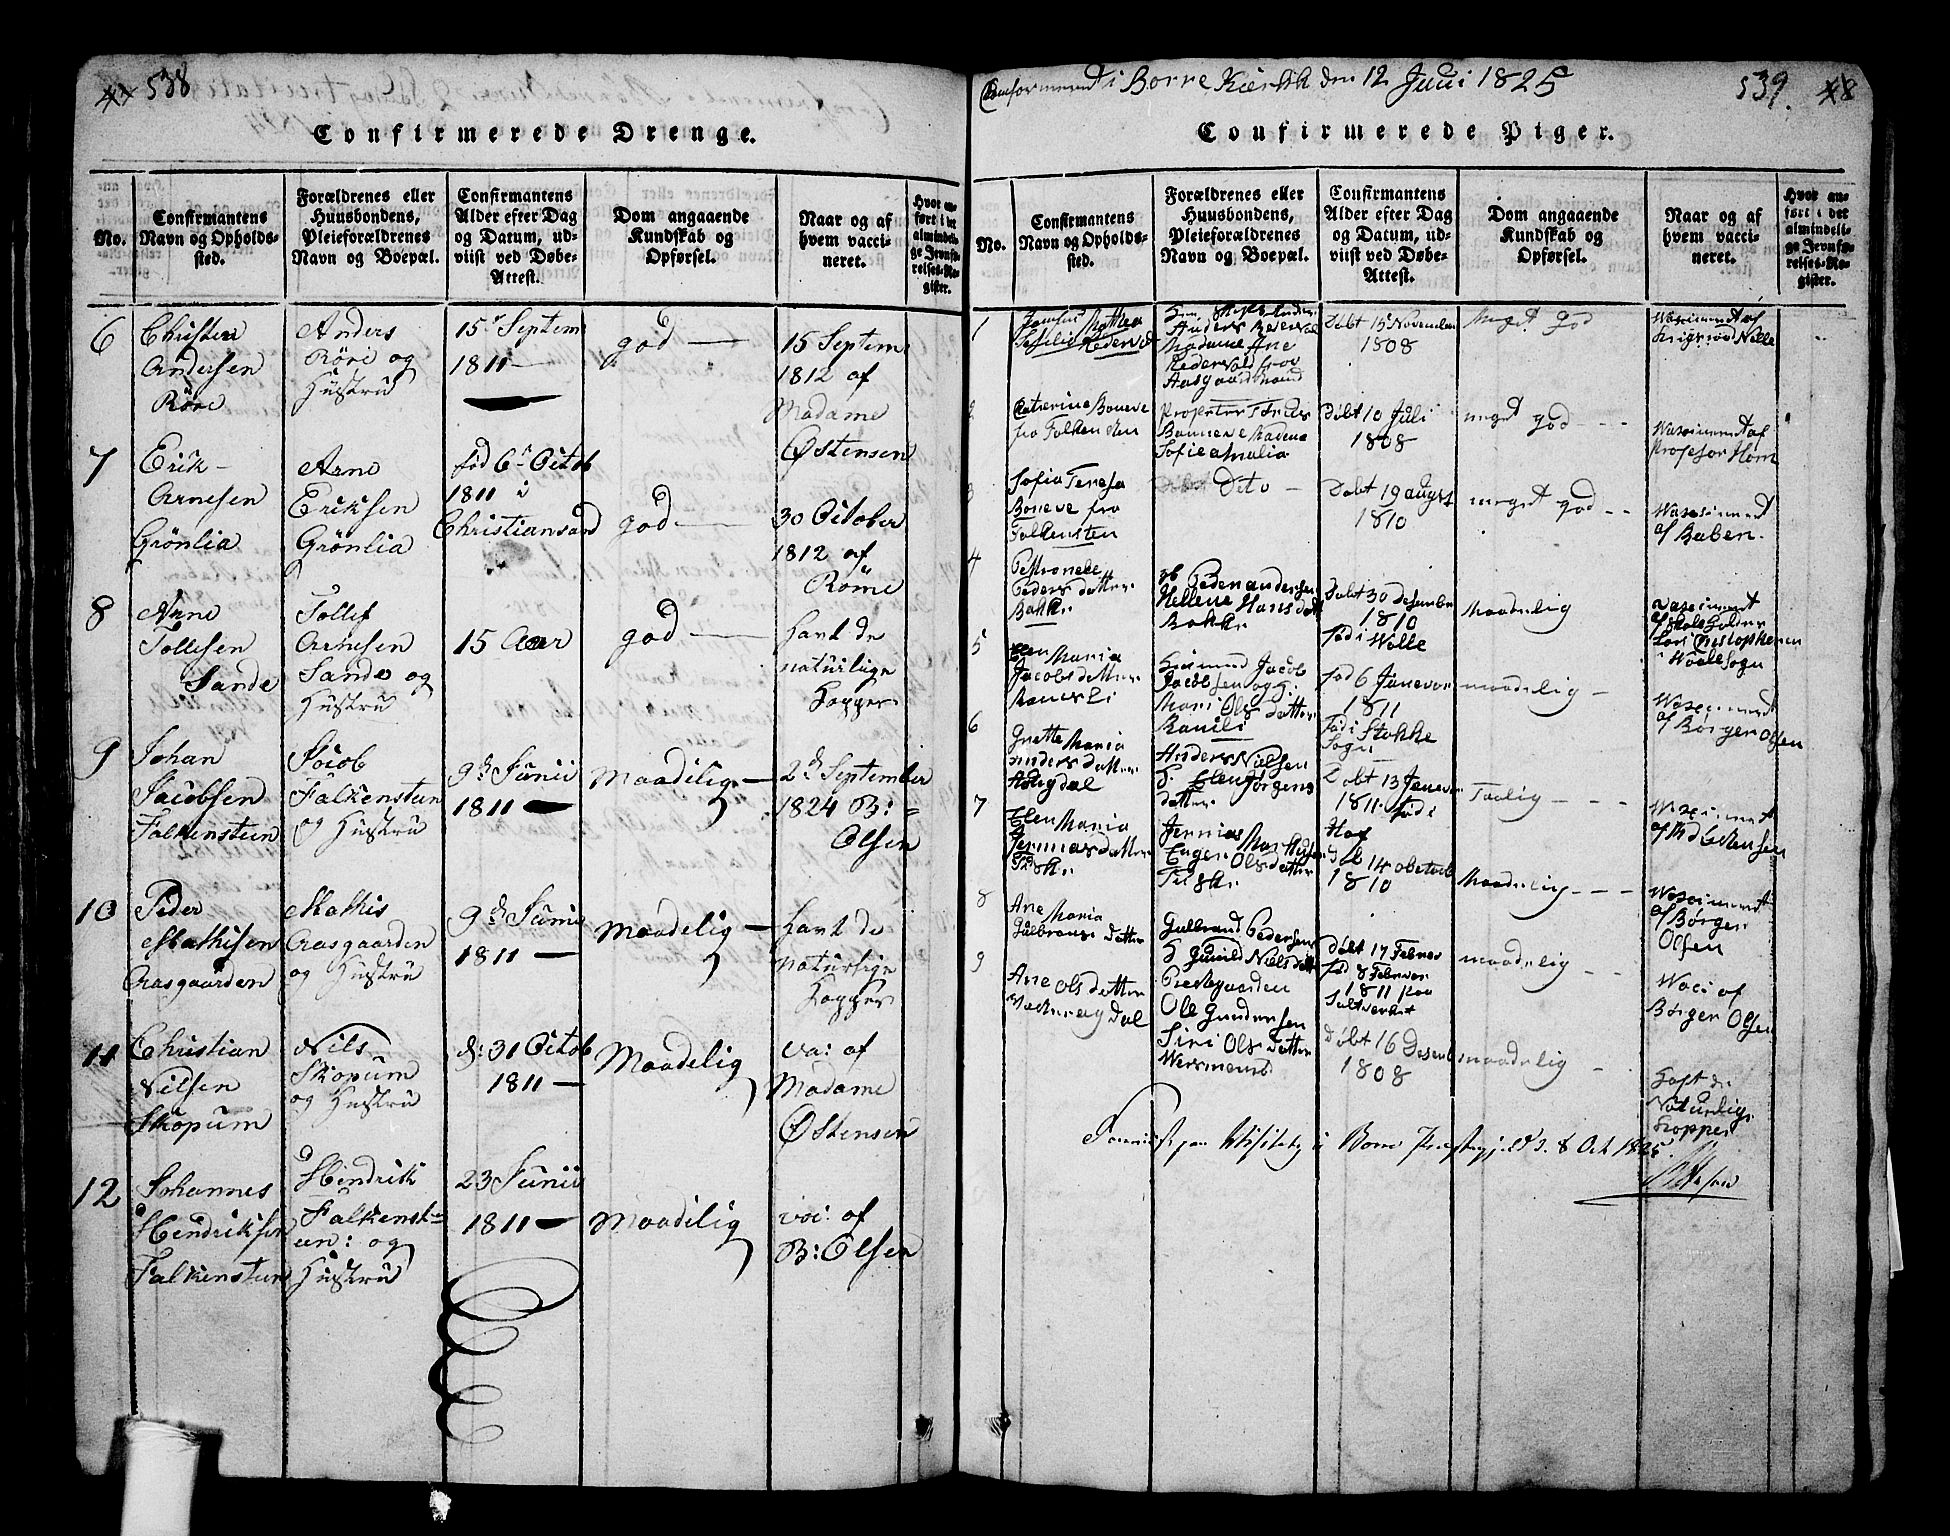 538
Confirmerede Drenge.
No.
Confirmantens
Navn og Opholds-
sted.
Forældrenes eller
Huusbondens,
Pleieforældrenes
Navn og Boepæl.
Confirmantens
Alder efter Dag
og Datum, ud-
viist ved Døbe-
Attest.
Dom angaaende
Kundskab og
Opførsel.
Naar og af
hvem vacci-
neret.
Hvor an-
ført i det
almindeli-
ge Jevnfø-
relses-Re-
gister.
6
Christen
Andersen
Röre
Anders
Röre og
Hustru
15 Septem
1811
god
15 Septem
1812 af
Madame
Østensen
7
Erik
Arnesen
Grönlia
Arne
Eriksen
Grönlia
föd 6 Octob
1811 i
Christiansand
god
30 October
1812 af
Röme
8
Arne
Tollefsen
Sande
Tollef
Arnesen
Sande og
Hustru
15 Aar
god
havt de
naturlige
Kopper
9
Johan
Jacobsen
Falkensteen
Jacob
Falkensteen
og Hustru
9 Junii
1811
Maadelig
2 September
1824 B:
Olsen
10
Peder
Mathisen
Aasgaarden
Mathis
Aasgaarden
og Hustru
9 Junii
1811
Maadelig
havt de
naturlige
Kopper
11
Christian
Nilsen
Skopum
Nils
Skopum
og Hustru
d: 31 Octob
1811
Maadelig
va: af
Madame
Østensen
12
Johannes
Hendriksen
Falkensteen
Hendrik
Falkenst=
een: og
Hustru
23 Junii
1811
Maadelig
vai: af
B: Olsen
Confermered i Borre Kierkk den 12 Juni 1825
539.
Confirmerede Piger.
No.
Confirmantens
Navn og Opholds-
sted.
Forældrenes eller
Huusbondens,
Pleieforældrenes
Navn og Boepæl.
Confirmantens
Alder efter Dag
og Datum, ud-
viist ved Døbe-
Attest.
Dom angaaende
Kundskab og
Opførsel.
Naar og af
hvem vacci-
neret.
Hvor an-
ført i det
almindeli-
ge Jevnfø-
relses-Re-
gister.
1
Mathea
Anders
Madame Ane
fra
Aasgaardstrand
Døbt 15 November
1808
Meget God
Vaxsineret af
Nelle
2
Catrerine Boneve
fra Falkensten
Bonneve Madame
Sofie Amalia
Døbt 10 Juli
1808
meget god
Vaxsineret af
Profesor Horn
3
Sofia Teresa
Boneve fra
Falkensten
Dito
Døbt 19 august
1810
meget god
Vaxsineret
af Baben.
4
Pettronele
Peders datter
Bakke
Peder andersen
Hellene Hans datt
Bakke
Døbt 30 Desember
1810
fød i Wolle
Maadelig
Vaxsineret
af Skoleholder
i Waale Sogn
5
Elen Maria
Jacobs datter
Jacob
Jacobsen og H:
Mari Ols datter
Ranili
fød 6 Janevar
1811
Fød i Stokke
Sogn
maadelig
Vaxsineret
af Børgen Olsen
6
Grette Maria
Anders datter
Anders Nielsen
H. Elen Jørgens
datter
Døbt 13 Janevar
1811. fød i
Taalig
Vaxsineret
7
Elen Maria
Jermias datter
Ols datter
14 October
1810
Maadelig
Vaxsineret
af Børgen
Olsen
8
Ane Maria
Gulbrans datter
Gulbrand Pedersen
H Gunild Niels datt
Prestegaarden
Døbt 17 Febrever
fød 8 Febrever
1811 paa
Saltverket
maadelig
Vaci af
Børgen Olsen
9
Ane Ols datter
Ole Gundersen
Siri Ols datter
Døbt 16 Desemb
1808
maadelig
Haft de
Naturlige
Kopper
Visitatz i Borre Præstegjeld d. 8 Oct 1825.